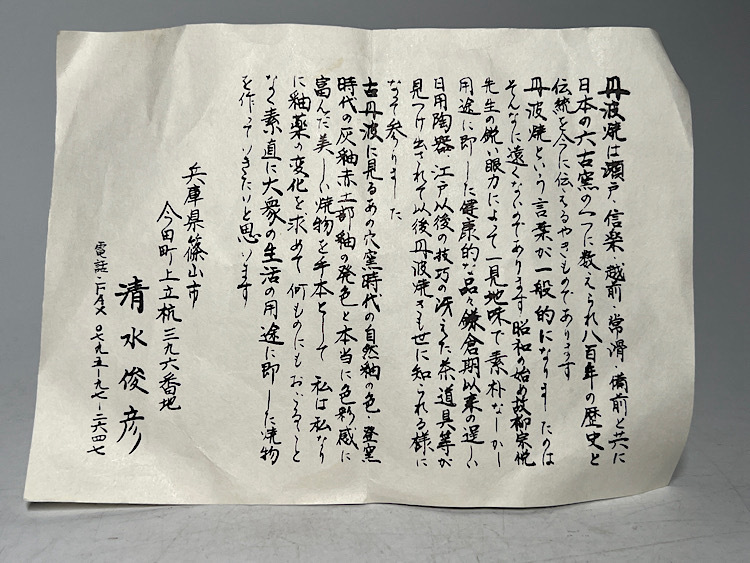 丹波焼は瀬戸・信楽・越前・常滑・備前と共に
日本の六古窯の一つに数えられ八百年の歴史と
伝統を今に伝えるやきものであります
丹波焼という言葉が一般的になりましたのは
そんなに遠くないのであります 昭和の始め故柳宗悦
先生の鋭い眼力によって一見地味で素朴なしかし
用途に即した健康的な品々鎌倉期以来の逞しい
日用陶器・江戸以後の技巧の冴えた茶道具等が
見つけ出されて以後丹波焼きも世に知られる様に
なって参りました
古丹波に見るあの穴窯時代の自然釉の色 登窯
時代の灰釉赤土部釉の発色と本当に色彩感に
富んだ美しい焼物を手本として 私は私なり
に釉薬の変化を求めて 何ものにもおごること
なく素直に大衆の生活の用途に即した焼物
を作っていきたいと思います
兵庫県篠山市
今田町上立杭三九六番地
清水俊彦
電話・FAX 〇七九五-九七-二六四七